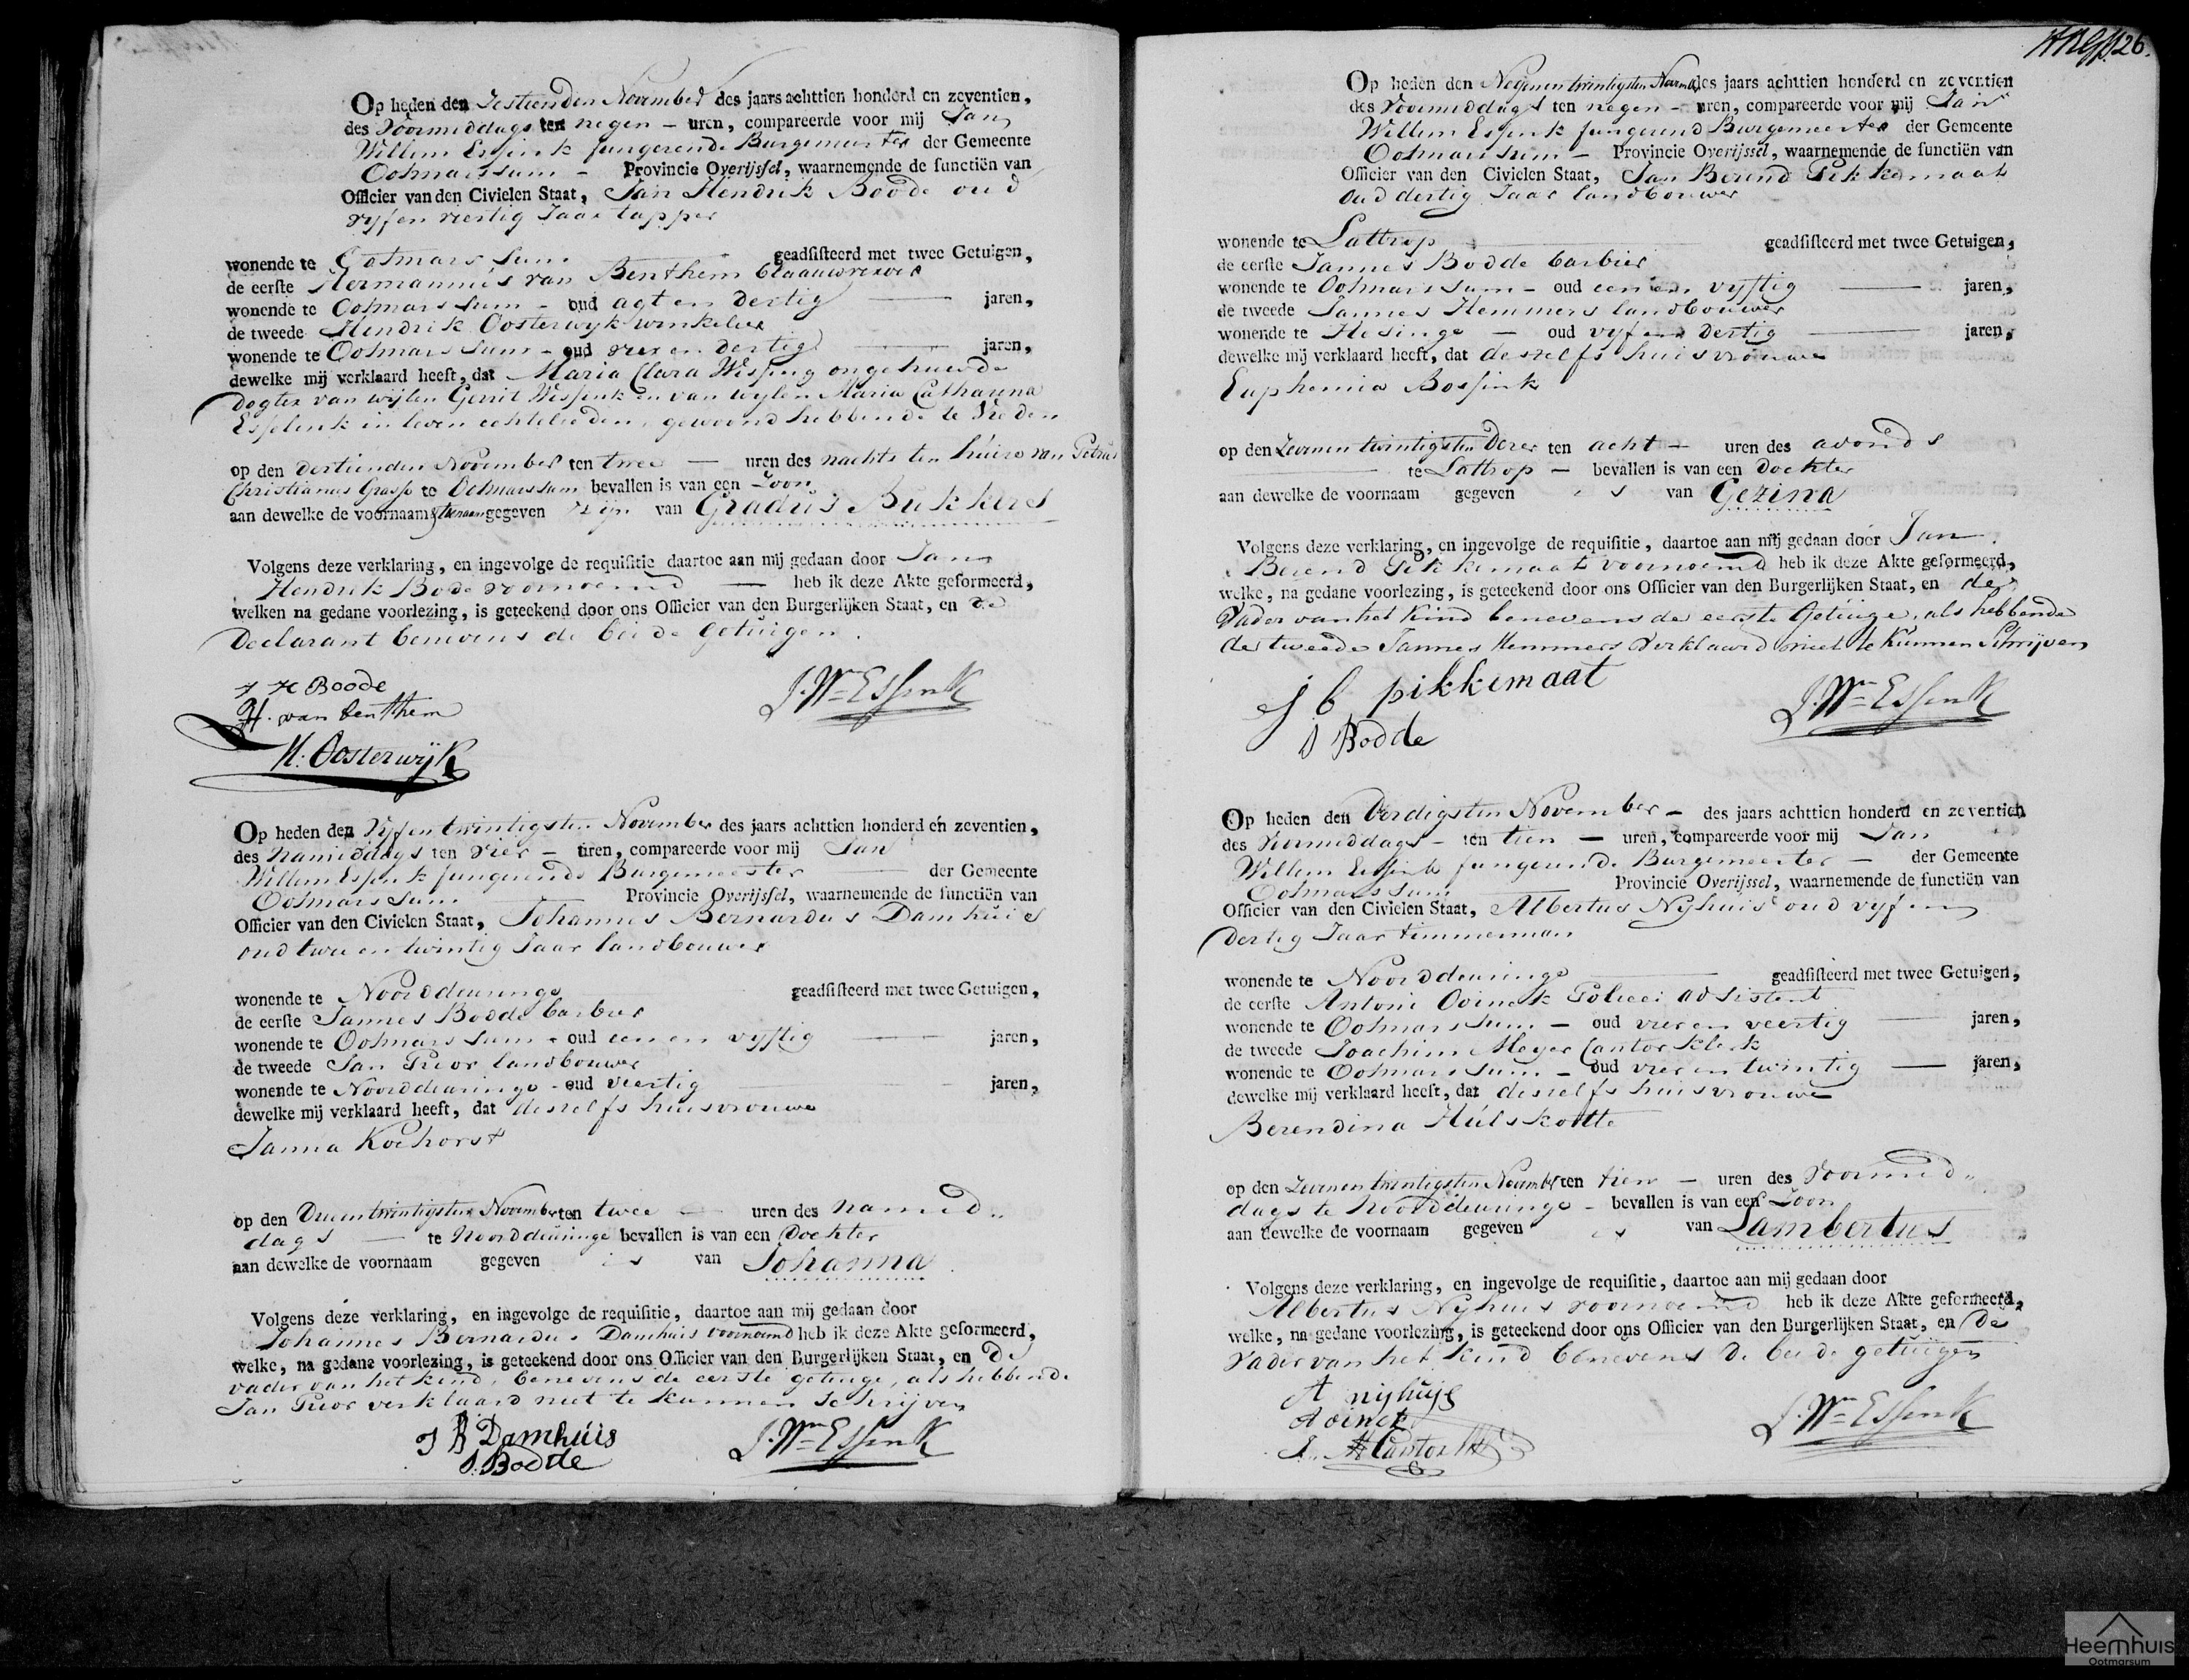 Op heden den Sestienden November des jaars achttien honderd en zeventien,
des Voormiddags ten negen – uren, compareerde voor mij Jan
Willem Essink fungerende Burgemeester der Gemeente
Ootmarssum – Provincie Overijssel, waarnemende de functiën van
Officier van den Civielen Staat, Jan Hendrik Boode oud
vyf en viertig Jaar tapper
wonende te Ootmarssum geadsisteerd met twee Getuigen,
de eerste Hermannus van Benthem blaauwverver
wonende te Ootmarssum – oud agt en dertig jaren,
de tweede Hendrik Oosterwyk winkelier
wonende te Ootmarssum – oud vier en dertig jaren,
dewelke mij verklaard heeft, dat Maria Clara Wissing ongehuwde
dogter van wijlen Gerrit Wissink en van wylen Maria Catharina
Esselink in leven echtelieden, gewoond hebbende te Vreden
op den dertienden November ten twee – uren des nachts ten huize van Petrus
Christianus Grasse te Ootmarssum bevallen is van een Zoon
aan dewelke de voornaam gegeven zijn van Gradus Bukkers
Volgens deze verklaring, en ingevolge de requisitie daartoe aan mij gedaan door Jan
Hendrik Bode voornoemd – heb ik deze Akte geformeerd,
welken na gedane voorlezing, is geteekend door ons Officier van den Burgerlijken Staat, en de
Declarant benevens de beide Getuigen.
J H Boode
H. van benthem
H. Oosterwijk
J. Wm Essink
Op heden den Vyfentwintigsten November des jaars achttien honderd en zeventien,
des Namiddags ten vier – uren, compareerde voor mij Jan
Willem Essink fungerende Burgemeester der Gemeente
Ootmarssum Provincie Overijssel, waarnemende de functiën van
Officier van den Civielen Staat, Johannes Bernardus Damhuis
oud twee en twintig Jaar landbouwer
wonende te Noorddeuringe geadsisteerd met twee Getuigen,
de eerste Jannes Bodde barbier
wonende te Ootmarssum – oud een en vyftig jaren,
de tweede Jan Prior landbouwer
wonende te Noorddeuringe – oud veertig jaren,
dewelke mij verklaard heeft, dat deszelfs huisvrouwe
Janna Koehorst
op den Drieentwintigsten November ten twee uren des namid
dags – te Noorddeuringe bevallen is van een Dochter
aan dewelke de voornaam gegeven is van Johanna
Volgens deze verklaring, en ingevolge de requisitie, daartoe aan mij gedaan door
Johannes Bernardus Damhuis voornoemd heb ik deze Akte geformeerd,
welke, na gedane voorlezing, is geteekend door ons Officier van den Burgerlijken Staat, en de
vader van het kind, benevens de eerste getuige, als hebbende
Jan Prior verklaard niet te kunnen schrijven
J B Damhuis
J. Bodde
J. Wm Essink
26.
Op heden den Negenentwintigsten Novemb des jaars achttien honderd en zeventien
des Voormiddags ten negen – uren, compareerde voor mij Jan
Willem Essink fungerend Burgemeester der Gemeente
Ootmarssum – Provincie Overijssel, waarnemende de functiën van
Officier van den Civielen Staat, Jan Berend Pikkemaat
oud dertig Jaar landbouwer
wonende te Lattrop geadsisteerd met twee Getuigen,
de eerste Jannes Bodde barbier
wonende te Ootmarssum – oud een en vyftig jaren,
de tweede Jannes Hemmers landbouwer
wonende te Hesinge – oud vyf en dertig jaren,
dewelke mij verklaard heeft, dat deszelfs huisvrouwe
Euphemia Bossink
op den Zevenentwintigsten Dezer ten acht – uren des avonds
te Lattrop – bevallen is van een Dochter
aan dewelke de voornaam gegeven is van Gezina
Volgens deze verklaring, en ingevolge de requisitie, daartoe aan mij gedaan door Jan
Berend Pikkemaat voornoemd heb ik deze Akte geformeerd,
welke, na gedane voorlezing, is geteekend door ons Officier van den Burgerlijken Staat, en de
Vader van het Kind benevens de eerste Getuige, als hebbende
de tweede Jannes Hemmers Verklaard niet te Kunnen Schrijven
J b pikkemaat
J Bodde
J. Wm Essink
Op heden den Dertigsten November – des jaars achttien honderd en zeventien
des Voormiddags – ten tien – uren, compareerde voor mij Jan
Willem Essink fungerende Burgemeester – der Gemeente
Ootmarssum Provincie Overijssel, waarnemende de functiën van
Officier van den Civielen Staat, Albertus Nyhuis oud vyf en
dertig Jaar timmerman
wonende te Noorddeuringe geadsisteerd met twee Getuigen,
de eerste Antoni Ovinck Policei adsistent
wonende te Ootmarssum – oud vier en veertig jaren,
de tweede Joachim Meyer Cantor Klerk
wonende te Ootmarssum – oud vier en twintig jaren,
dewelke mij verklaard heeft, dat deszelfs huisvrouwe
Berendina Hulskotte
op den Zevenentwintigsten November ten tien – uren des Voormid
dags te Noorddeuringe – bevallen is van een Zoon
aan dewelke de voornaam gegeven is van Lambertus
Volgens deze verklaring, en ingevolge de requisitie, daartoe aan mij gedaan door
Albertus Nyhuis voornoemd heb ik deze Akte geformeerd,
welke, na gedane voorlezing, is geteekend door ons Officier van den Burgerlijken Staat, en de
Vader van het kind benevens de beide getuigen
A nijhuijs
A ovinck
J. Wm Essink
Heemhuis
Ootmarsum